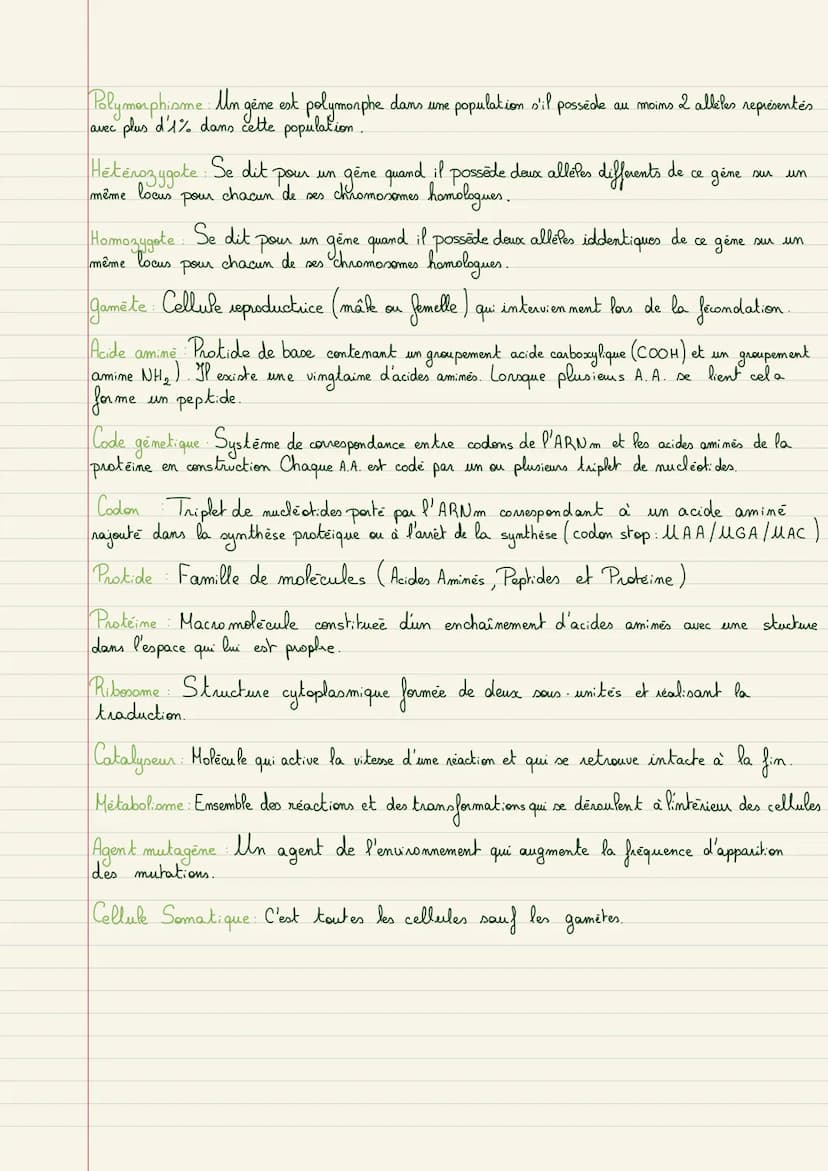 Polymorphisme : Un gène est polymorphe dans une population s'il possède au moins 2 allèles représentés
avec plus d'1% dans cette population .
Hétérozygote : Se dit pour un gène quand il possède deux allèles differents de ce gène sur un
même locus pour chacun de ses chromosomes homologues.
Homozygote : Se dit pour un gène quand il possède deux allèles iddentiques de ce gène sur un
même locus pour chacun de ses chromosomes homologues.
gamète : Cellule reproductrice (mâle ou femelle) qui interviennent lors de la fécondation.
Acide aminé Protide de base contenant un groupement acide carboxylique (COOH) et un groupement
amine NH₂). Il existe une vingtaine d'acides aminés. Lorsque plusieurs A.A. se lient cela
forme un peptide.
Code génetique : Système de correspondance entre codons de l'ARNm et les acides aminés de la
protéine en construction Chaque A.A. est codé par un ou plusieurs triplet de nucléotides.
Codon : Triplet de nucléotides porté par l'ARNm correspondant à un acide aminé
rajouté dans la synthèse protéique ou à l'arrêt de la synthèse (codon stop : UAA/UGA/UAC)
Protide : Famille de molécules (Acides Aminés, Peptides et Protéine)
Protéine : Macromolécule constitueé d'un enchaînement d'acides aminés avec une stucture
dans l'espace qui lui est prophe.
Ribosome : Structure cytoplasmique formée de deux sous-unités et réalisant la
traduction.
Catalyseur : Molécule qui active la vitesse d'une réaction et qui se retrouve intacte à la fin.
Métabolisme : Ensemble des réactions et des transformations qui se déroulent à l'intérieur des cellules
Agent mutagène : Un agent de l'environnement qui augmente la fréquence d'apparition
des mutations.
Cellule Somatique : C'est toutes les cellules sauf les gamètes.